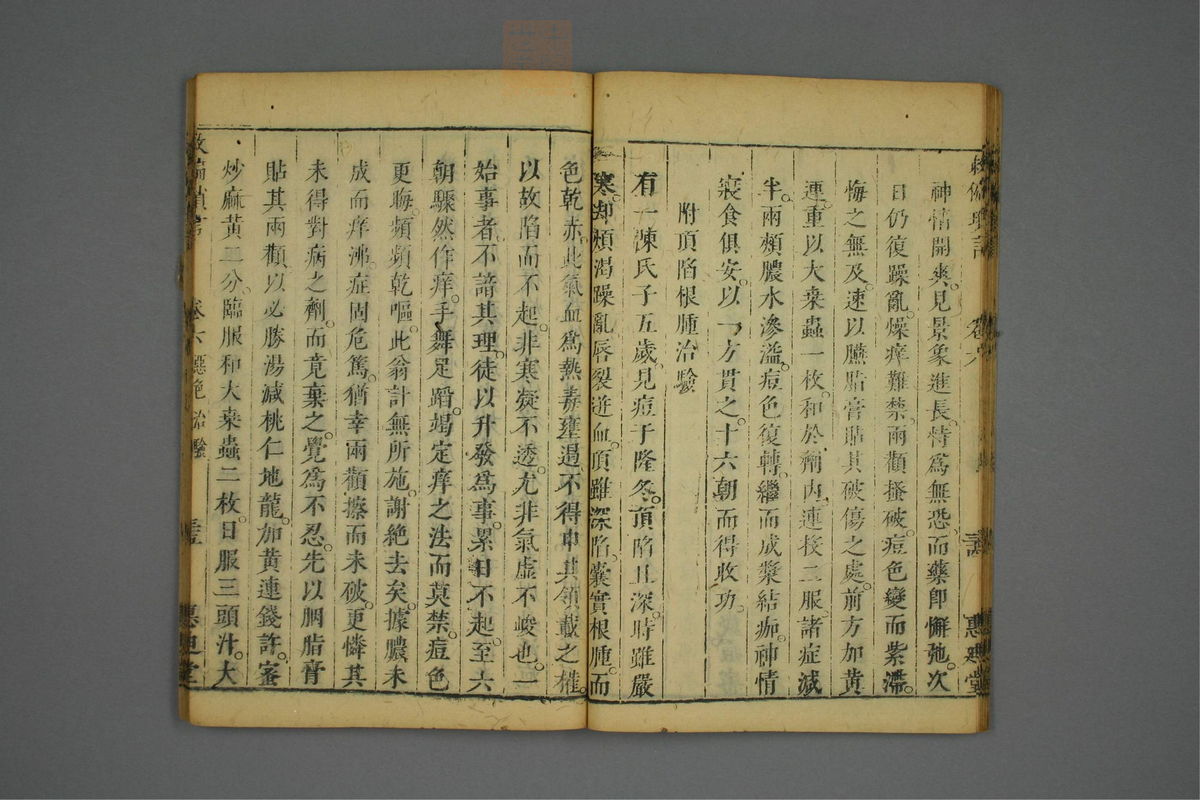 神情開爽。見景象進長。恃爲無恐。而藥卽懈弛。次
日仍復躁亂。燥痒難禁。兩顴搔破。痘色變而紫滯。
悔之無及。速以臙脂膏貼其破傷之處。前方加黃
連。重以大桒蟲一枚。和於劑內。連投二服。諸症減
半。兩頰膿水滲溢。痘色復轉。繼而成漿結痂。神情
寢食俱安。以一方貫之。十六朝而得收功。
附頂陷根腫治驗
有一陳氏子五歲。見痘于隆冬。頂陷且深。時雖嚴
寒。却煩渴躁亂。唇裂迸血。頂雖深陷。囊實根腫。而
色乾赤。此氣血爲熱毒壅遏。不得申其領載之權。
以故陷而不起。非寒凝不透。尤非氣虛不峻也。一
始事者。不諳其理。徒以升發爲事。累日不起。至六
朝驟然作痒。手舞足蹈。竭定痒之法而莫禁。痘色
更晦。頻頻乾嘔。此翁計無所施。謝絶去矣。據膿未
成而痒沸。症固危篤。猶幸兩顴擦而未破。更憐其
未得對病之劑。而竟棄之。覺爲不忍。先以胭脂膏
貼其兩顴。以必勝湯減桃仁地龍。加黃連錢許。蜜
炒麻黃二分。臨服和大桒蟲二枚。日服三頭汁。大
卷六
惠迪堂